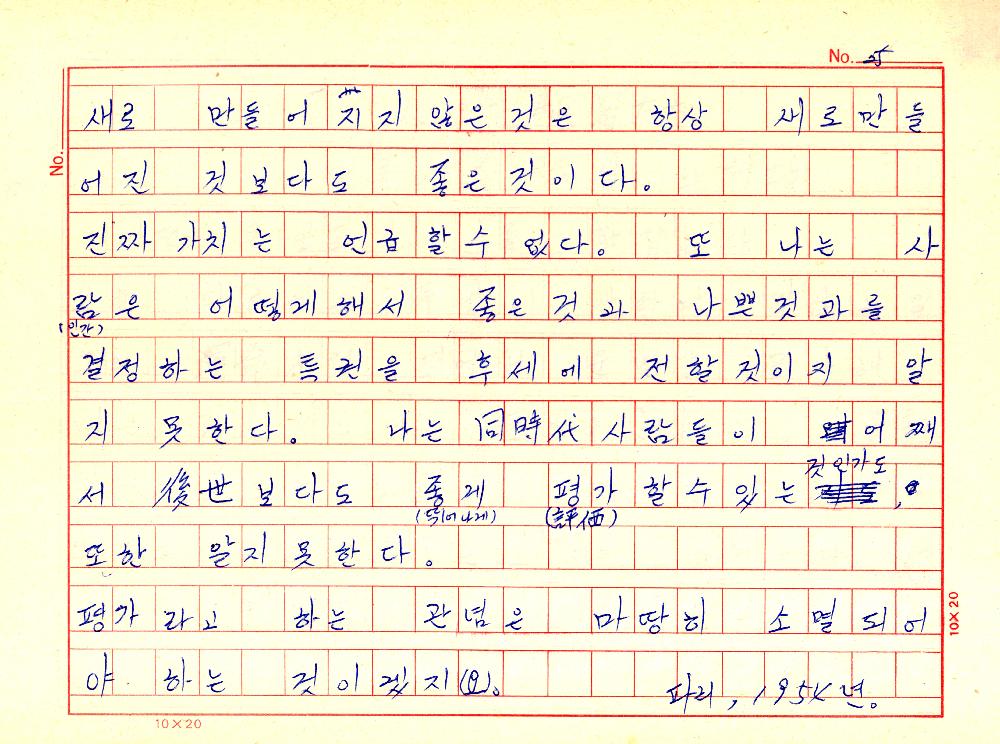 No. 25
새로 만들어 지지 않은것은 항상 새로만들
No.
어진 것보다도 좋은것이다.
진짜 가치는 언급할수 없다. 또 나는 사
람은 어떻게해서 좋은것과 나쁜것과를
(인간)
결정하는 특권을 후세에 전할것이지 알
지 못한다. 나는 同時代 사람들이 어째
것인가도
서 後世보다도 좋게 평가 할수있는 ,
(뛰어나게) (評価)
또한 알지못한다.
평가라고 하는 관념은 마땅히 소멸되어
10×20
야 하는 것이겠지(요).
파리, 1954년.
10×20